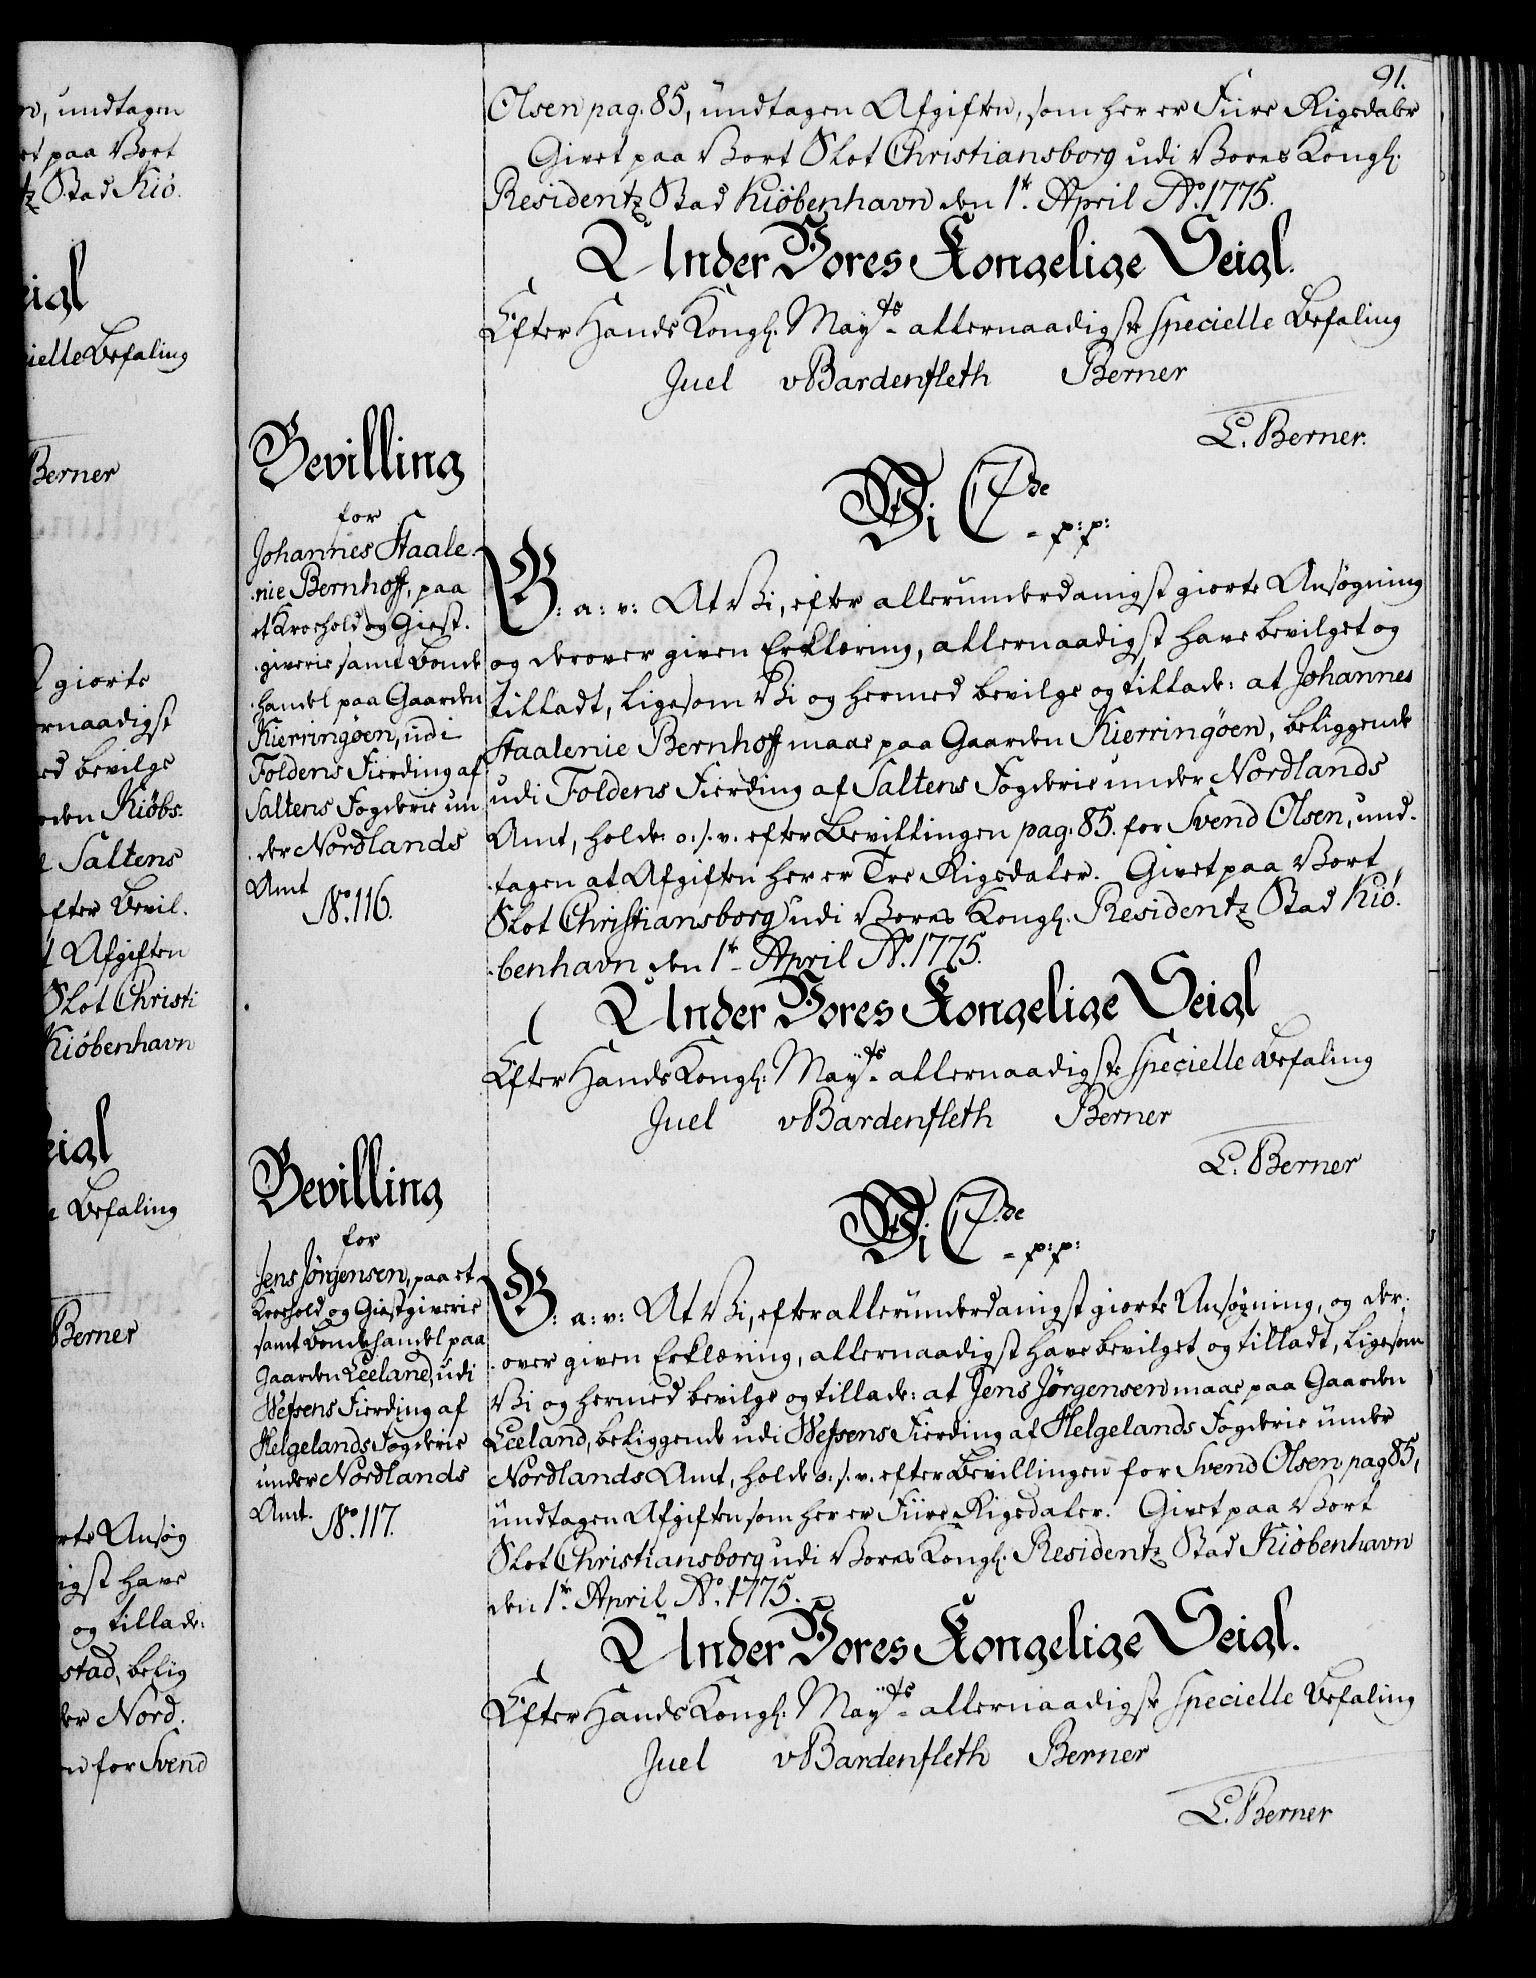 91.
Olsen pag: 85, undtagen Afgiften, som her er Fiire Rigsdaler
Givet paa Vort Slot Christiansborg udi Vores Kongl:
Residentz Stad Kiöbenhavn den 1te April Ao. 1775.
Under Vores Kongelige Seigl.
Efter Hands Kongl: Mayts allernaadigste specielle Befaling
Juel vBardenfleth Berner
L. Berner.
Bevilling
for
Johannes Staale-
nie Bernhoff, paa
et Kroehold og Giest-
giverie samt Bonde
handel paa Gaarden
Kierringöen, udi
Foldens Fierding af
Saltens Fogderie un
der Nordlands
Amt
No. 116.
Vi C 7de - p: p:
G: a: v: At Vi, efter allerunderdanigst giorte Ansøgning
og derover given Erklæring, allernaadigst have bevilget og
tilladt, ligesom Vi og hermed bevilge og tillade: at Johannes
Staalenie Bernhoff maae paa Gaarden Kierringöen, beliggende
udi Foldens Fierding af Saltens Fogderie under Nordlands
Amt, holde o: s: v: efter Bevillingen pag: 85. for Svend Olsen, und-
tagen at Afgiften her er Tre Rigsdaler. Givet paa Vort
Slot Christiansborg udi Vores Kongl: Residentz Stad Kiö-
benhavn den 1te April Ao. 1775.
Under Vores Kongelige Seigl
Efter Hands Kongl: Mayts allernaadigste specielle Befaling
Juel vBardenfleth Berner
L. Berner
Bevilling
for
Jens Jørgensen, paa et
Kroehold og Giestgiverie
samt Bondehandel paa
Gaarden Leeland, udi
Wefsens Fierding af
Helgelands Fogderie
under Nordlands
Amt.
No. 117.
Vi C 7de - p: p:
G: a: v: At Vi, efter allerunderdanigst giorte Ansøgning, og der-
over given Erklæring, allernaadigst have bevilget og tilladt, ligesom
Vi og hermed bevilge og tillade: at Jens Jørgensen maae paa Gaarden
Leeland, beliggende udi Wefsens Fierding af Helgelands Fogderie under
Nordlands Amt, holde o: s: v: efter Bevillingen for Svend Olsen pag 85,
undtagen Afgiften som her er Fiire Rigsdaler. Givet paa Vort
Slot Christiansborg udi Vores Kongl: Residentz Stad Kiöbenhavn
den 1te April Ao. 1775.
Under Vores Kongelige Seigl.
Efter Hands Kongl: Mayts allernaadigste specielle Befaling
Juel vBardenfleth Berner
L. Berner